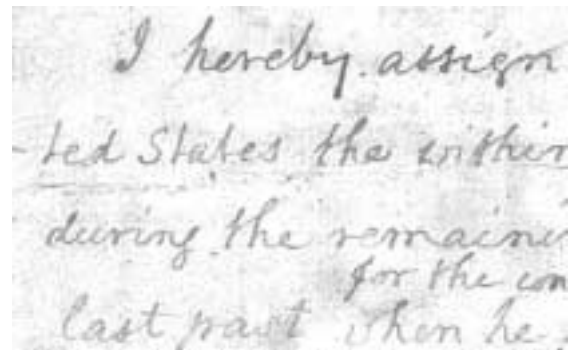 I hereby assign
-ted States the within
during the remaini
for the con
last past when he